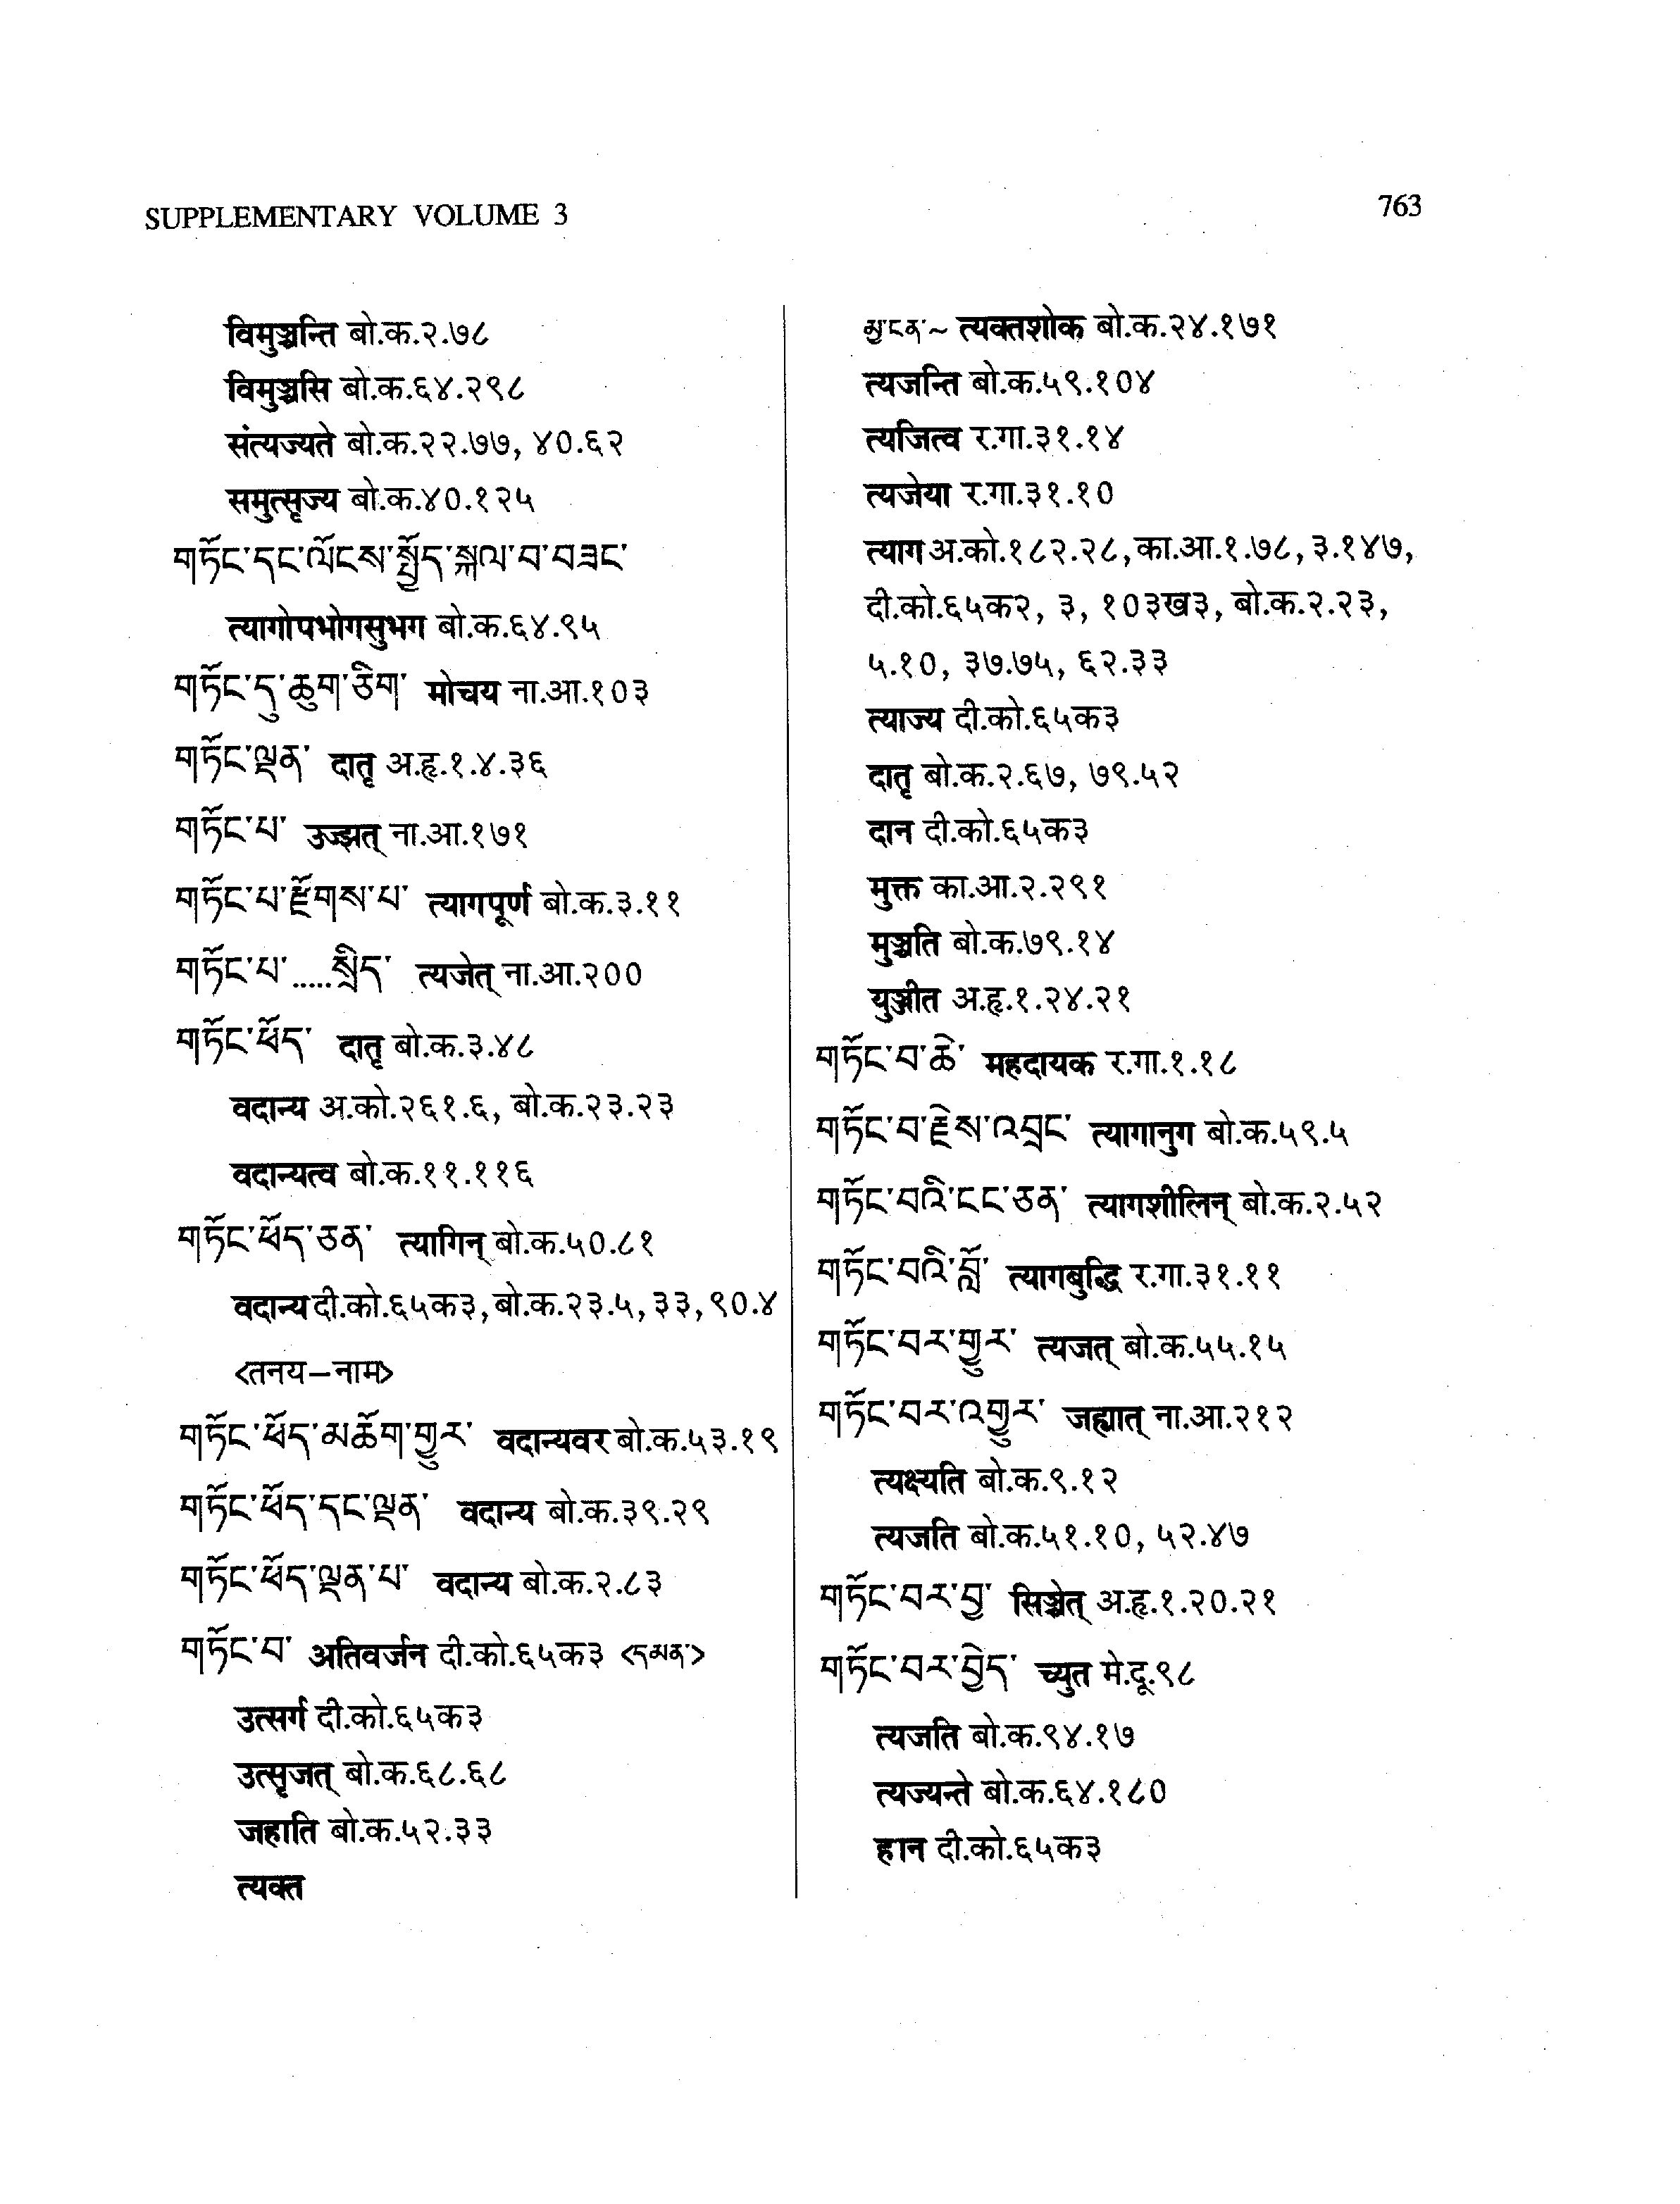 SUPPLEMENTARY VOLUME 3
763
विमुञ्चन्ति बो.क.२.७८
विमुञ्चसि बो.क.६४.२९८
संत्यज्यते बो.क.२२.७७, ४०.६२
समुत्सृज्य बो.क.४०.१२५
གཏོང་དང་ལོངས་སྤྱོད་སྐལ་བ་བཟང་
त्यागोपभोगसुभग बो.क.६४.९५
གཏོང་དུ་ཆུག་ཅིག་ मोचय ना.आ.१०३
གཏོང་ལྡན་ दातृ अ.हृ.१.४.३६
གཏོང་པ་ उज्झत् ना.आ.१७१
གཏོང་པ་རྫོགས་པ་ त्यागपूर्ण बो.क.३.११
གཏོང་པ་.....སྲིད་ त्यजेत् ना.आ.२००
གཏོང་ཕོད་ दातृ बो.क.३.४८
वदान्य अ.को.२६१.६, बो.क.२३.२३
वदान्यत्व बो.क.११.११६
གཏོང་ཕོད་ཅན་ त्यागिन् बो.क.५०.८१
वदान्य दी.को.६५क३, बो.क.२३.५, ३३, ९०.४
<तनय–नाम>
གཏོང་ཕོད་མཆོག་གྱུར་ वदान्यवर बो.क.५३.१९
གཏོང་ཕོད་དང་ལྡན་ वदान्य बो.क.३९.२९
གཏོང་ཕོད་ལྡན་པ་ वदान्य बो.क.२.८३
གཏོང་བ་ अतिवर्जन दी.को.६५क३ <དམན་>
उत्सर्ग दी.को.६५क३
उत्सृजत् बो.क.६८.६८
जहाति बो.क.५२.३३
त्यक्त
མྱ་ངན་~ त्यक्तशोक बो.क.२४.१७१
त्यजन्ति बो.क.५९.१०४
त्यजित्व र.गा.३१.१४
त्यजेया र.गा.३१.१०
त्याग अ.को.१८२.२८, का.आ.१.७८, ३.१४७,
दी.को.६५क२, ३, १०३ख३, बो.क.२.२३,
५.१०, ३७.७५, ६२.३३
त्याज्य दी.को.६५क३
दातृ बो.क.२.६७, ७९.५२
दान दी.को.६५क३
मुक्त का.आ.२.२९१
मुञ्चति बो.क.७९.१४
युञ्जीत अ.हृ.१.२४.२१
གཏོང་བ་ཆེ་ महदायक र.गा.१.१८
གཏོང་བ་རྗེས་འབྲང་ त्यागानुग बो.क.५९.५
གཏོང་བའི་ངང་ཅན་ त्यागशीलिन् बो.क.२.५२
གཏོང་བའི་བློ་ त्यागबुद्धि र.गा.३१.११
གཏོང་བར་གྱུར་ त्यजत् बो.क.५५.१५
གཏོང་བར་འགྱུར་ जह्यात् ना.आ.२१२
त्यक्ष्यति बो.क.९.१२
त्यजति बो.क.५१.१०, ५२.४७
གཏོང་བར་བྱ་ सिञ्चेत् अ.हृ.१.२०.२१
གཏོང་བར་བྱེད་ च्युत मे.दू.९८
त्यजति बो.क.९४.१७
त्यज्यन्ते बो.क.६४.१८०
हान दी.को.६५क३